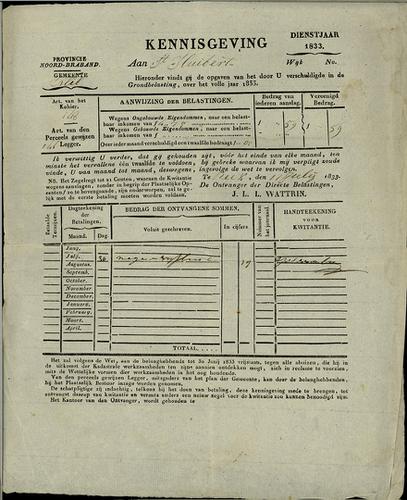 KENNISGEVING
DIENSTJAAR
1833.
PROVINCIE
NOORD-BRABAND.
GEMEENTE
Aan
Wyk No.
Hieronder vindt gij de opgaven van het door U verschuldigde in de
Grondbelasting, over het volle jaar 1833.
Art. van het
Kohier.
Art. van den
Perceels gewijzen
Legger.
AANWIJZING DER BELASTINGEN.
Bedrag van
iederen aanslag.
Vereenigd
Bedrag.
Wegens Ongebouwde Eigendommen, naar een belast-
baar inkomen van f
Wegens Gebouwde Eigendommen, naar een belast-
baar inkomen van f
Over ieder maand verschuldigd een twaalfde bedraagt f
1 59
1 59
Ik verwittig U verder, dat gij gehouden zyt, vóór het einde van elke maand, ten
minste het vervallen een twaalfde te voldoen, bij gebreke waarvan ik mij verpligt zoude
vinden, U van maand tot maand, deswegens, ingevolge de wet te vervolgen.
NB. Het Zegelregt tot 21 Centen, waaraan de Kwitantie
wegens aanslagen, zonder in begrip der Plaatselijke Op-
centen, te bovengaande, zijn onderworpen, zal te ge-
lijk met de eerste betaling moeten worden voldaan.
Te 1833.
De Ontvanger der Directe Belastingen,
J. L. L. WATTRIN.
Betaalde
termijnen.
Dagteekening
der
Betalingen.
Maand. Dag.
BEDRAG DER ONTVANGENE SOMMEN,
Voluit geschreven. In cijfers
Nommer van
het journaal.
HANDTEEKENING
VOOR
KWITANTIE.
Junij.
Julij. 30
Augustus.
Septemb.
October.
November.
December.
January.
February.
Maart.
April.
TOTAAL
Het zal volgens de Wet, aan de belanghebbenden tot 30 Junij 1833 vrijstaan, tegen alle abuizen, die hij in
de uitkomst der Kadastrale werkzaamheden ten zijnen aanzien ontdekken mogt, zich in reclame te voorzien,
mits de Wettelijke vormen dier werkzaamheden in het oog houdende.
Van den perceels gewijzen Legger, mitsgaders van het plan der Gemeente, kan door de belanghebbenden,
bij het Plaatselijk Bestuur inzage worden genomen.
De schatpligtige zij indachtig, telkens bij het doen van betaling, deze kennisgeving mede te brengen, tot
Het Kantoor van den Ontvanger, wordt gehouden te